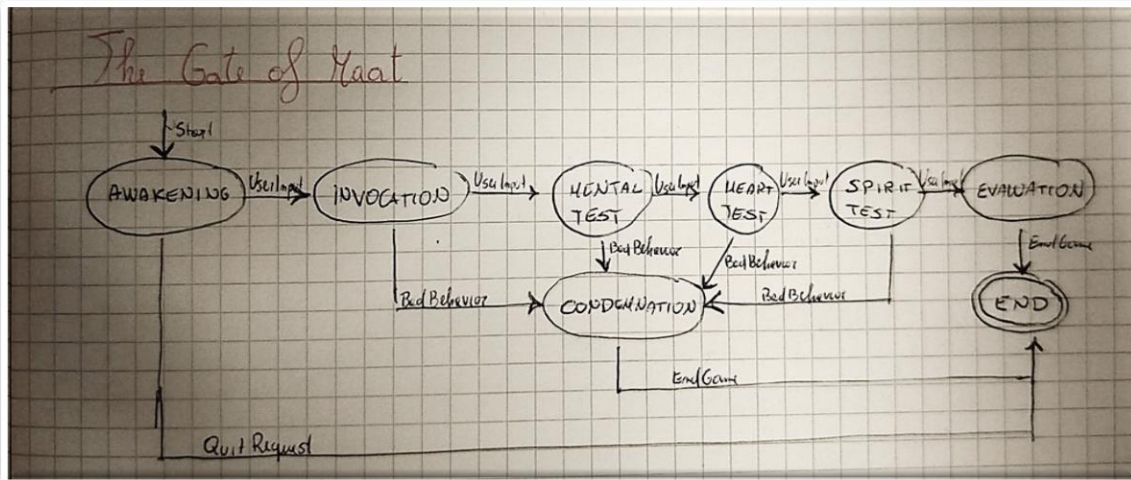 The Gate of Maat
Start
AWAKENING
UserInput
INVOCATION
UserInput
MENTAL
TEST
UserInput
HEART
TEST
UserInput
SPIRIT
TEST
UserInput
EVALUATION
BadBehavior
BadBehavior
EndGame
BadBehavior
CONDEMNATION
BadBehavior
END
EndGame
Quit Request